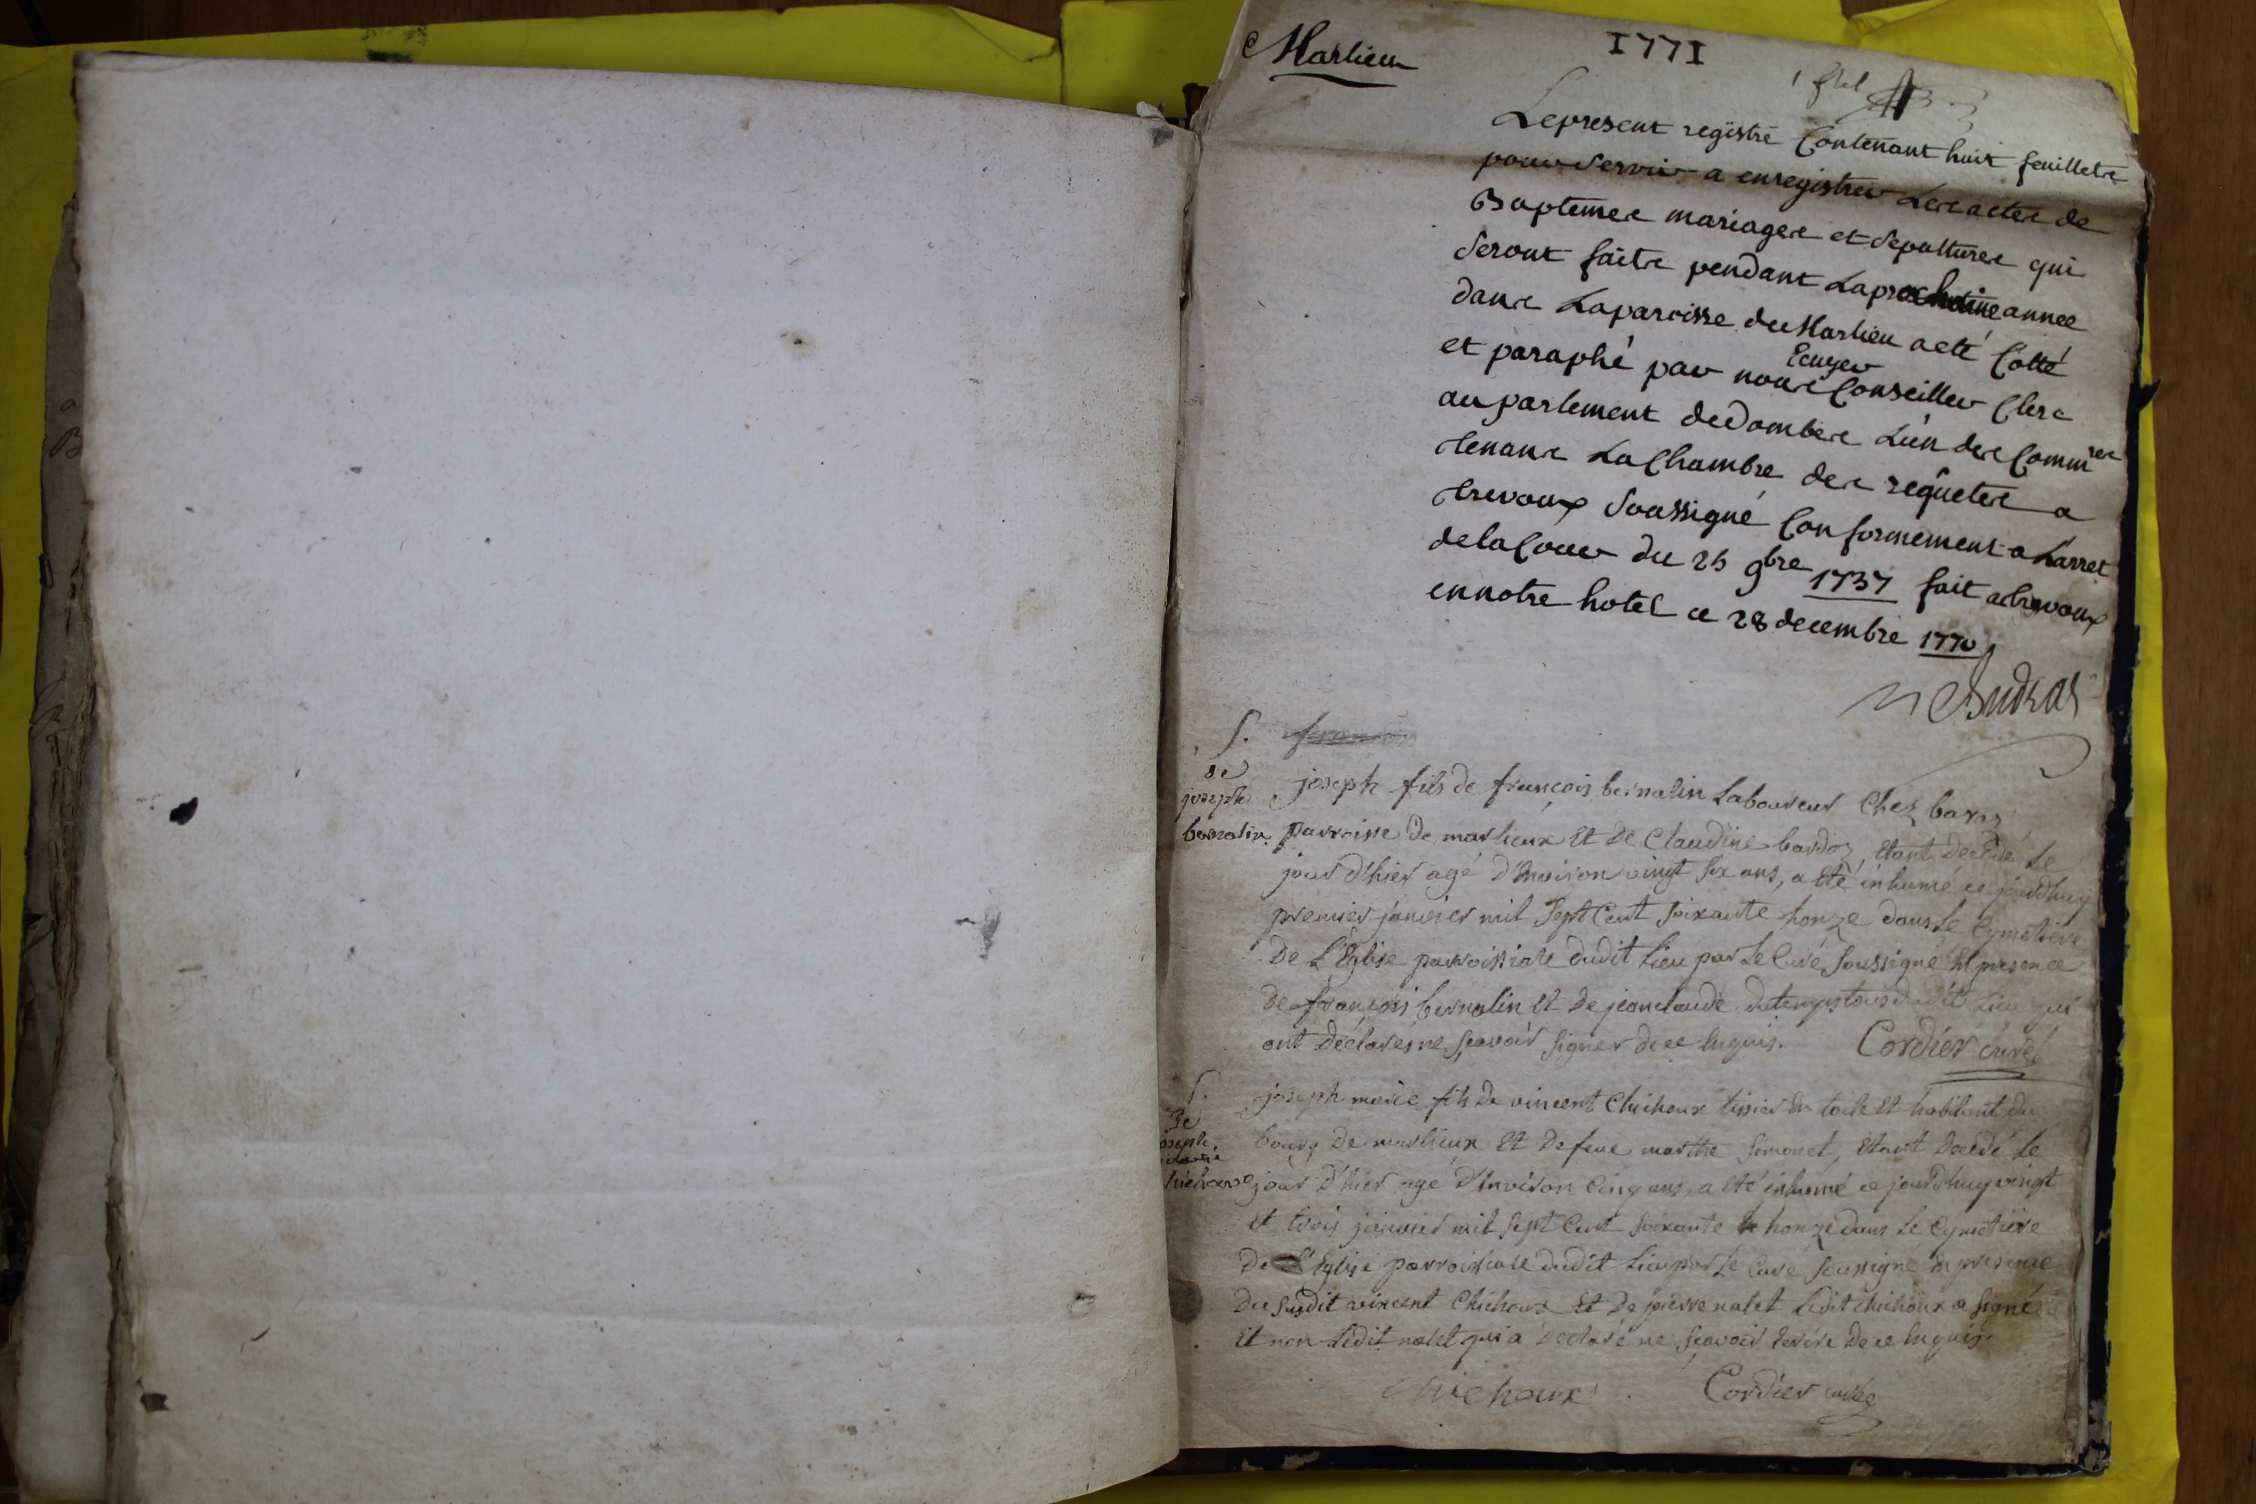 Marlieu
1771
Le present registre Contenant huit feuillets
pour Servir a enregistrer Les actes de
Baptemes mariages et Sepultures qui
Seront faits pendant La prochaine année
dans La paroisse du Marlieu a eté Cotté
et paraphé par nous Ecuyer Conseiller Clerc
au parlement de Dombes L'un des Commres
tenans La Chambre des requetes a
trevoux Soussigné Conformement a L'arret
de la Cour du 25 9bre 1737 fait a trevoux
en notre hotel ce 28 decembre 1770
Andras
S.
de
joseph
bernalin.
joseph fils de françois bernalin Laboureur Chez barys
parroisse de marlieux Et De Claudine bardoz, Etant decedé Le
jour d'hier agé D'Environ vingt six ans, a Eté inhumé ce jourdhuy
premier janvier mil Sept Cent soixante honze dans Le Cymetiere
De L'Eglise parroissiale dudit Lieu par Le Curé Soussigné En presence
De françois bernalin Et De jeanclaude tous dudit Lieu qui
ont Déclarés ne sçavoir signer de ce Enquis. Cordier curé
S.
De
joseph
marie
chichoux
joseph marie fils De vincent Chichoux tissier En toile Et habitant du
bourg De marlieux Et De feue marthe Simonet, Etant Decedé Le
jour D'hier agé D'Environ Cinq ans, a Eté inhumé ce jourdhuy vingt
Et trois janvier mil Sept Cent Soixante honze dans Le Cymetiere
De L'Eglise parroissiale dudit Lieu par Le Curé Soussigné En presence
Du Susdit vincent Chichoux Et De pierre nalet Ledit chichoux a signé
Et non Ledit nalet qui a Declaré ne sçavoir Ecrire De ce Enquis
Chichoux. Cordier curé